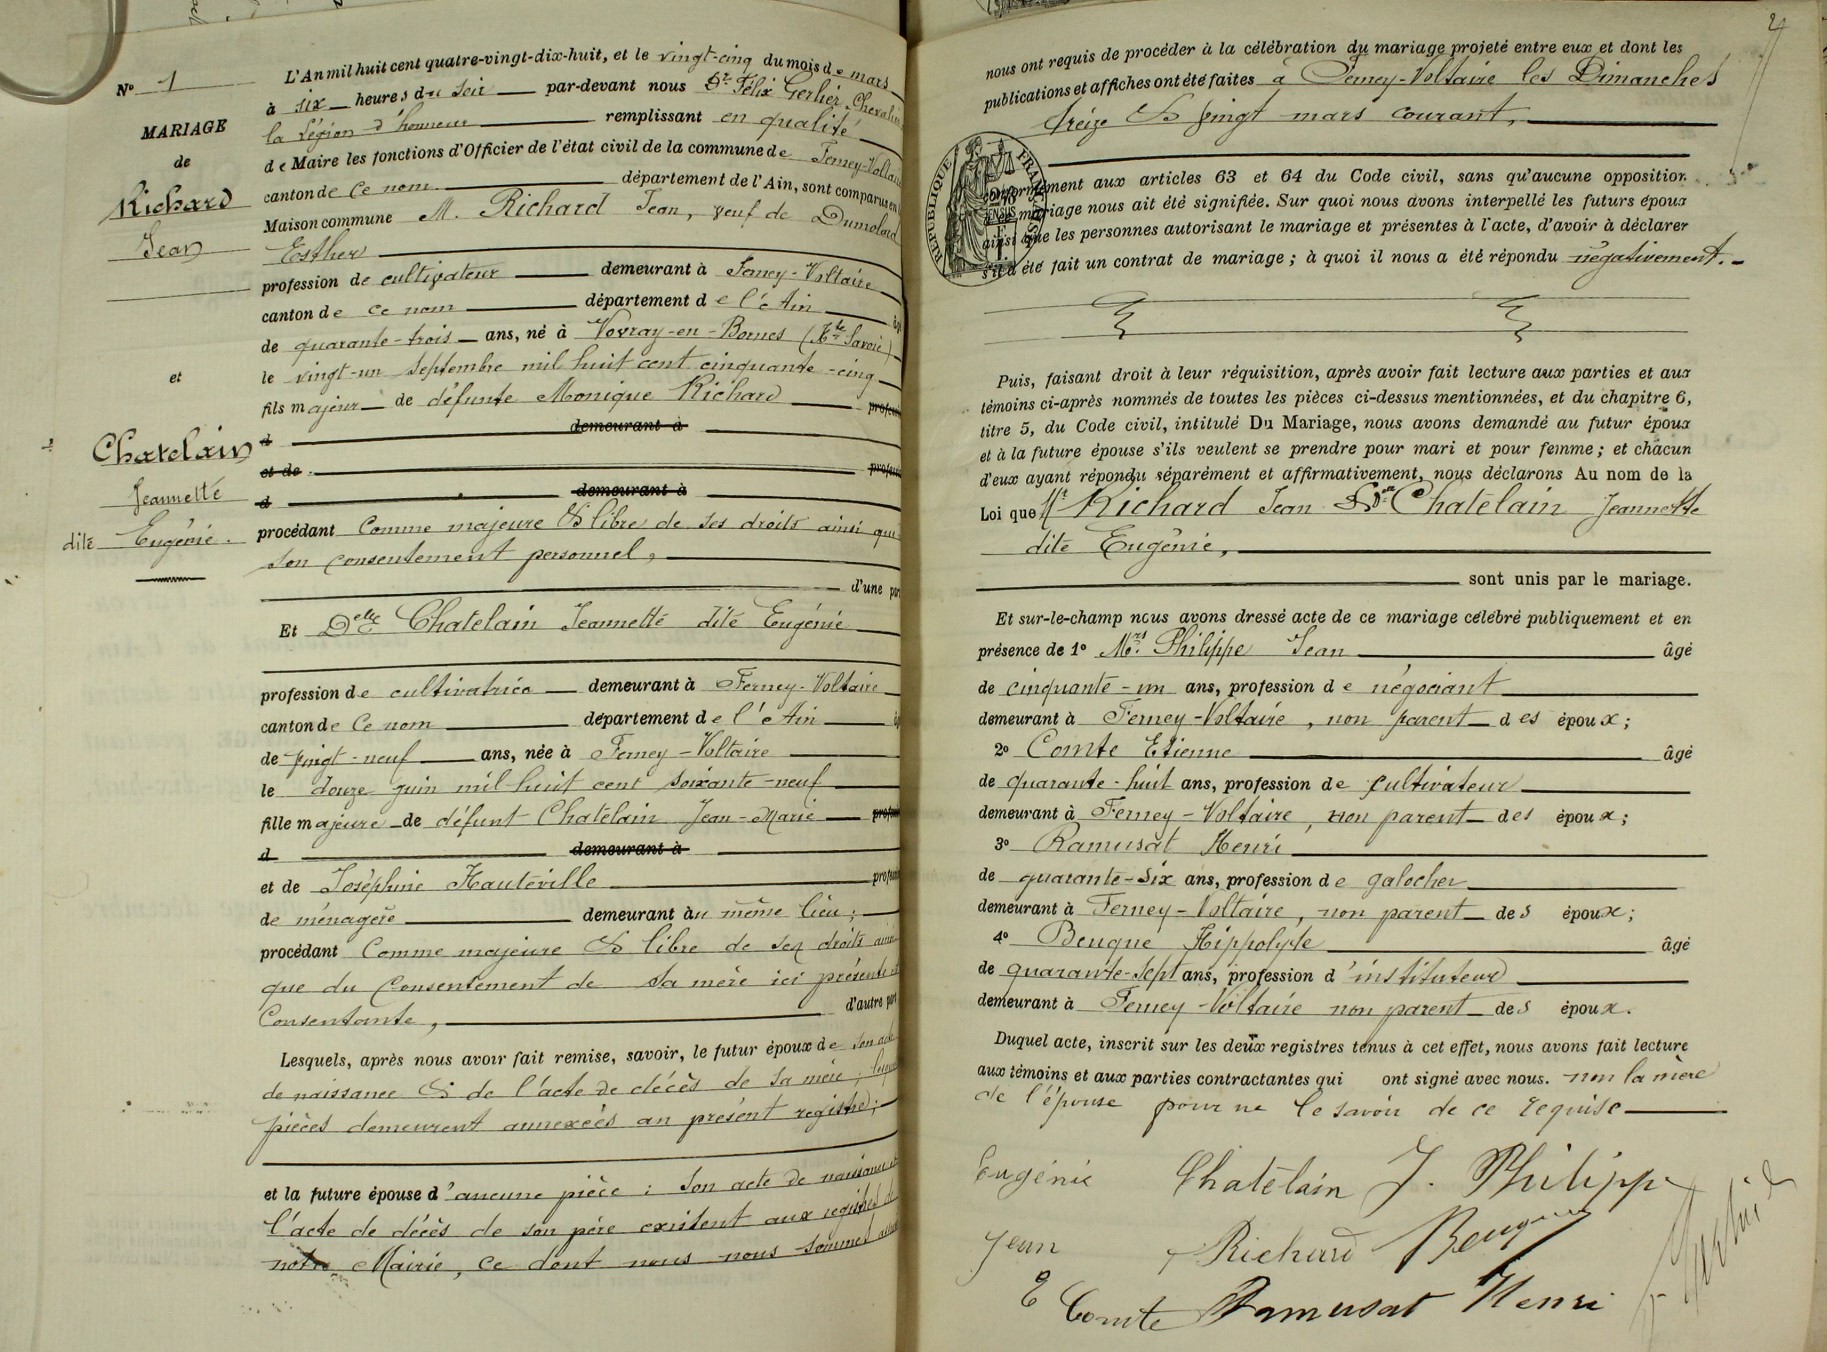 Nº 1
MARIAGE
de
Richard
Jean
et
Chatelain
Jeannette
dite Eugénie.
L'An mil huit cent quatre-vingt-dix-huit, et le vingt-cinq du mois de mars
à six heures du soir par-devant nous Dr Félix Gerlier, Chevalier
la légion d'honneur remplissant en qualité
de Maire les fonctions d'Officier de l'état civil de la commune de Ferney-Voltaire
canton de Ce nom département de l'Ain, sont comparus en
Maison commune M. Richard Jean, veuf de Dumolard
Esther
profession de cultivateur demeurant à Ferney-Voltaire
canton de ce nom département de l'Ain
de quarante-trois ans, né à Vovray-en-Bornes (Hte Savoie)
le vingt-un septembre mil huit cent cinquante-cinq
fils majeur de défunte Monique Richard
d demeurant à
et de
d demeurant à
procédant Comme majeure & libre de ses droits ainsi que
son consentement personnel,
d'une part
Et Delle Chatelain Jeannette dite Eugénie
profession de cultivatrice demeurant à Ferney-Voltaire
canton de Ce nom département de l'Ain
de vingt-neuf ans, née à Ferney-Voltaire
le douze juin mil huit cent soixante-neuf
fille majeure de défunt Chatelain Jean-Marie
d demeurant à
et de Joséphine Hauteville
de ménagère demeurant au même lieu;
procédant Comme majeure & libre de ses droits ainsi
que du Consentement de sa mère ici présente et
Consentante, d'autre part
Lesquels, après nous avoir fait remise, savoir, le futur époux de son acte
de naissance & de l'acte de décès de sa mère;
pièces demeurent annexées au présent registre;
et la future épouse d'aucune pièce: son acte de naissance et
l'acte de décès de son père existent aux registres de
notre Mairie, ce dont nous nous sommes
nous ont requis de procéder à la célébration du mariage projeté entre eux et dont les
publications et affiches ont été faites à Ferney-Voltaire les Dimanches
treize & vingt mars courant,
RÉPUBLIQUE FRANÇAISE
conformément aux articles 63 et 64 du Code civil, sans qu'aucune opposition
mariage nous ait été signifiée. Sur quoi nous avons interpellé les futurs époux
ainsi que les personnes autorisant le mariage et présentes à l'acte, d'avoir à déclarer
s'il a été fait un contrat de mariage; à quoi il nous a été répondu négativement.
Puis, faisant droit à leur réquisition, après avoir fait lecture aux parties et aux
témoins ci-après nommés de toutes les pièces ci-dessus mentionnées, et du chapitre 6,
titre 5, du Code civil, intitulé Du Mariage, nous avons demandé au futur époux
et à la future épouse s'ils veulent se prendre pour mari et pour femme; et chacun
d'eux ayant répondu séparément et affirmativement, nous déclarons Au nom de la
Loi que Mr Richard Jean & Delle Chatelain Jeannette
dite Eugénie,
sont unis par le mariage.
Et sur-le-champ nous avons dressé acte de ce mariage célébré publiquement et en
présence de 1º Mrs. Philippe Jean âgé
de cinquante-un ans, profession de négociant
demeurant à Ferney-Voltaire, non parent des époux;
2º Comte Etienne âgé
de quarante-huit ans, profession de cultivateur
demeurant à Ferney-Voltaire, non parent des époux;
3º Ramusat Henri
de quarante-six ans, profession de galocher
demeurant à Ferney-Voltaire, non parent des époux;
4º Beugue Hippolyte âgé
de quarante-sept ans, profession d'instituteur
demeurant à Ferney-Voltaire non parent des époux.
Duquel acte, inscrit sur les deux registres tenus à cet effet, nous avons fait lecture
aux témoins et aux parties contractantes qui ont signé avec nous. non la mère
de l'épouse pour ne le savoir de ce requise
Eugénie Chatelain J. Philippe
Jean Richard Beugue
E Comte Ramusat Henri